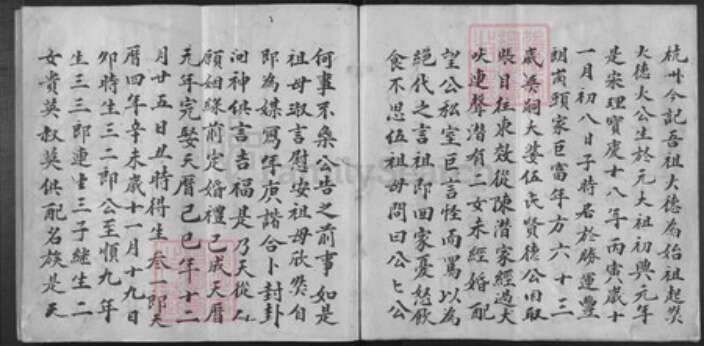 杭廿今記吾祖大德為始祖起然
大德大公生於元大祖初興元年
是宋理寶慶十八年丙寅歲十
一月初八日子時居於勝運豐
朗崗頭家巨富年方六十三
歲無嗣大婆伍氏賢德公旧取
賬目往東效從陳潜家經過犬
吠連聲潜有二女未經婚配
望公私室巨言怪而罵以為
絕代之言祖即回家憂愁飲
食不思伍祖母問曰公匕公
何事不樂公告之前事如是
祖母淑言慰安祖母欣然自
即為媒寫年庚諧合卜封卦
问神俱言吉福是乃天從人
願姻緣前定婚禮已成天曆
元年完娶天曆己巳年十二
月廿五日丑時得生叁一郎天
曆四年辛未歲十一月十九日
卯時生三二郎公至順九年
生三三郎連生三子継生二
女貴英叔英俱配名族是天